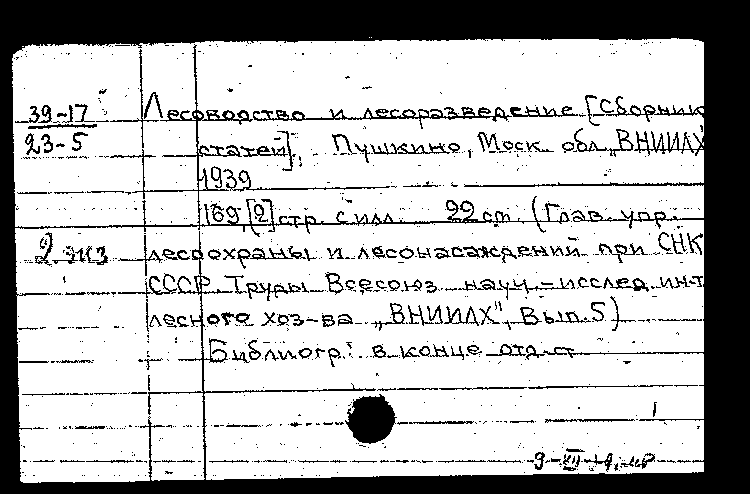 39-17 Лесоводство и лесоразведение [Сборник
23-5 статей], Пушкино, Моск. обл. „ВНИИЛХ
1939
169,[2] стр. с илл. 22 см. (Глав. упр.
2 экз лесоохраны и лесонасаждений при СНК
СССР. Труды Всесоюз. науч.-исслед. ин-т
лесного хоз-ва „ВНИИЛХ", Вып. 5)
Библиогр.: в конце отд. ст.